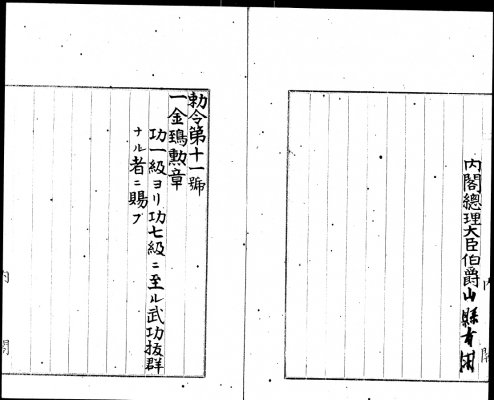 内閣總理大臣伯爵山縣有朋
勅令第十一號
一金鵄勲章
功一級ヨリ功七級ニ至ル武功抜群
ナル者ニ賜フ
内閣
内閣